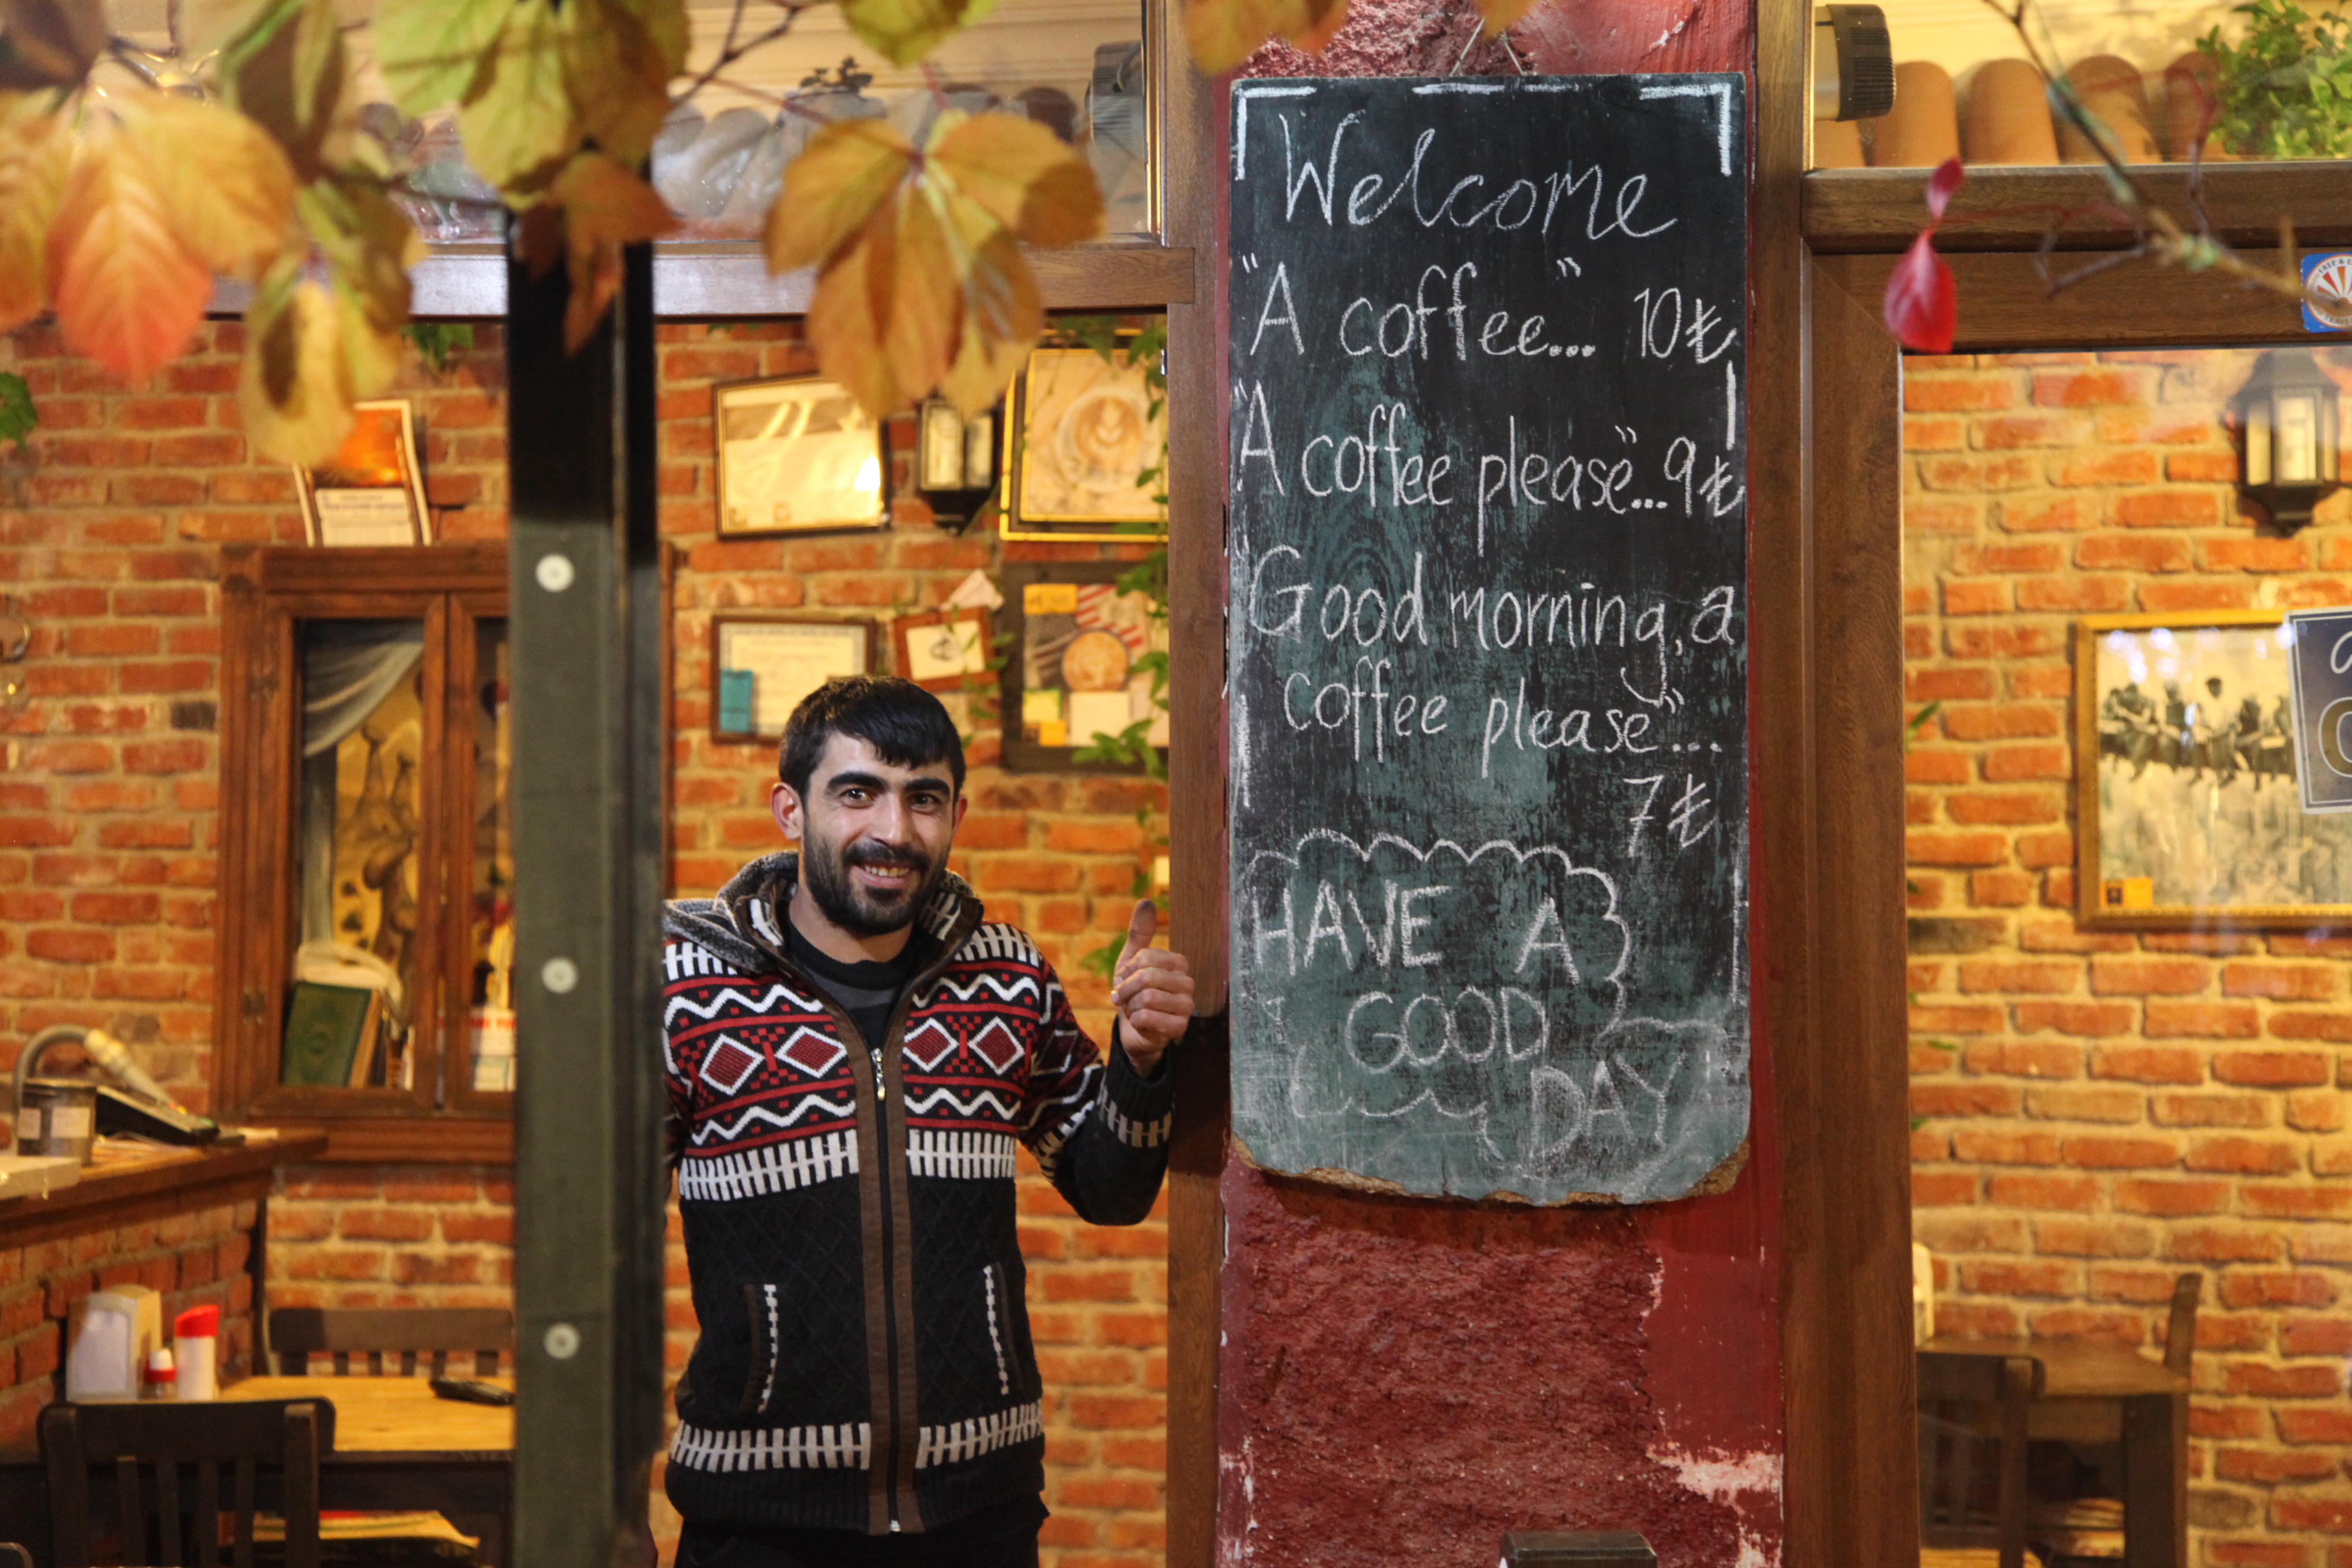 Welcome
"A coffee"... 10₺
"A coffee please"...9₺
Good morning, a
coffee please"...
7₺
HAVE A
GOOD
DAY